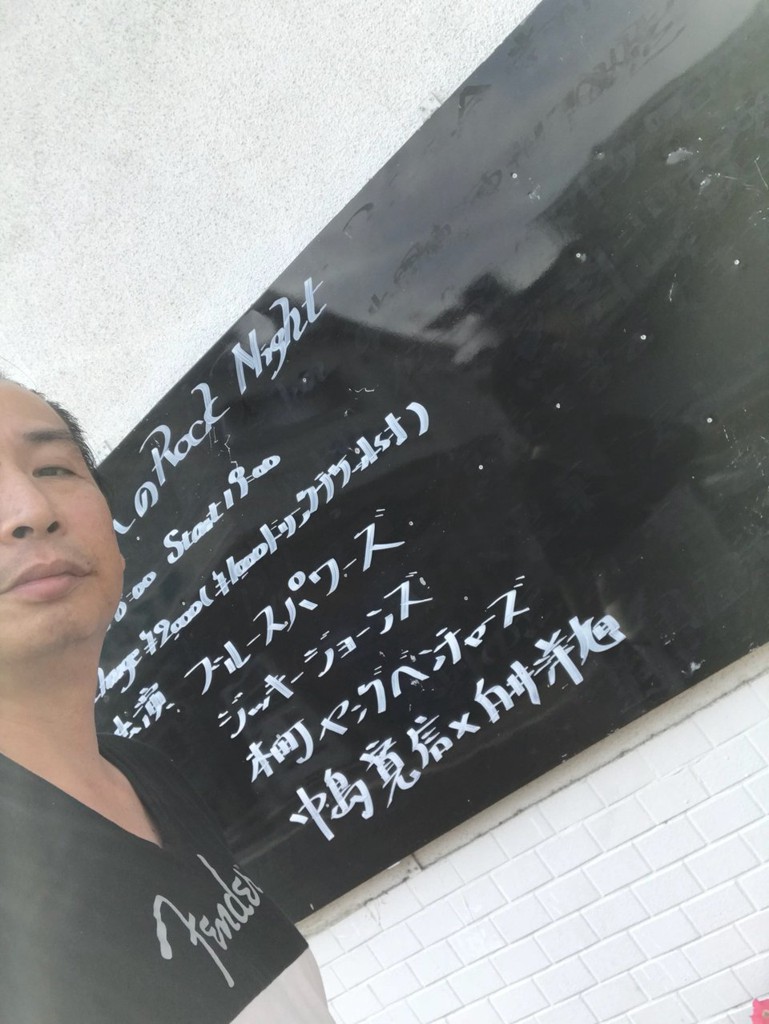 のRock Night
0:00 Start 19:00
harge ¥2000(¥1000ドリンクフラワーズst)
出演 ブルースパワーズ
ジャッキージョーンズ
本町ヤングベンチャーズ
中島寛信×白井洋旭
Fender